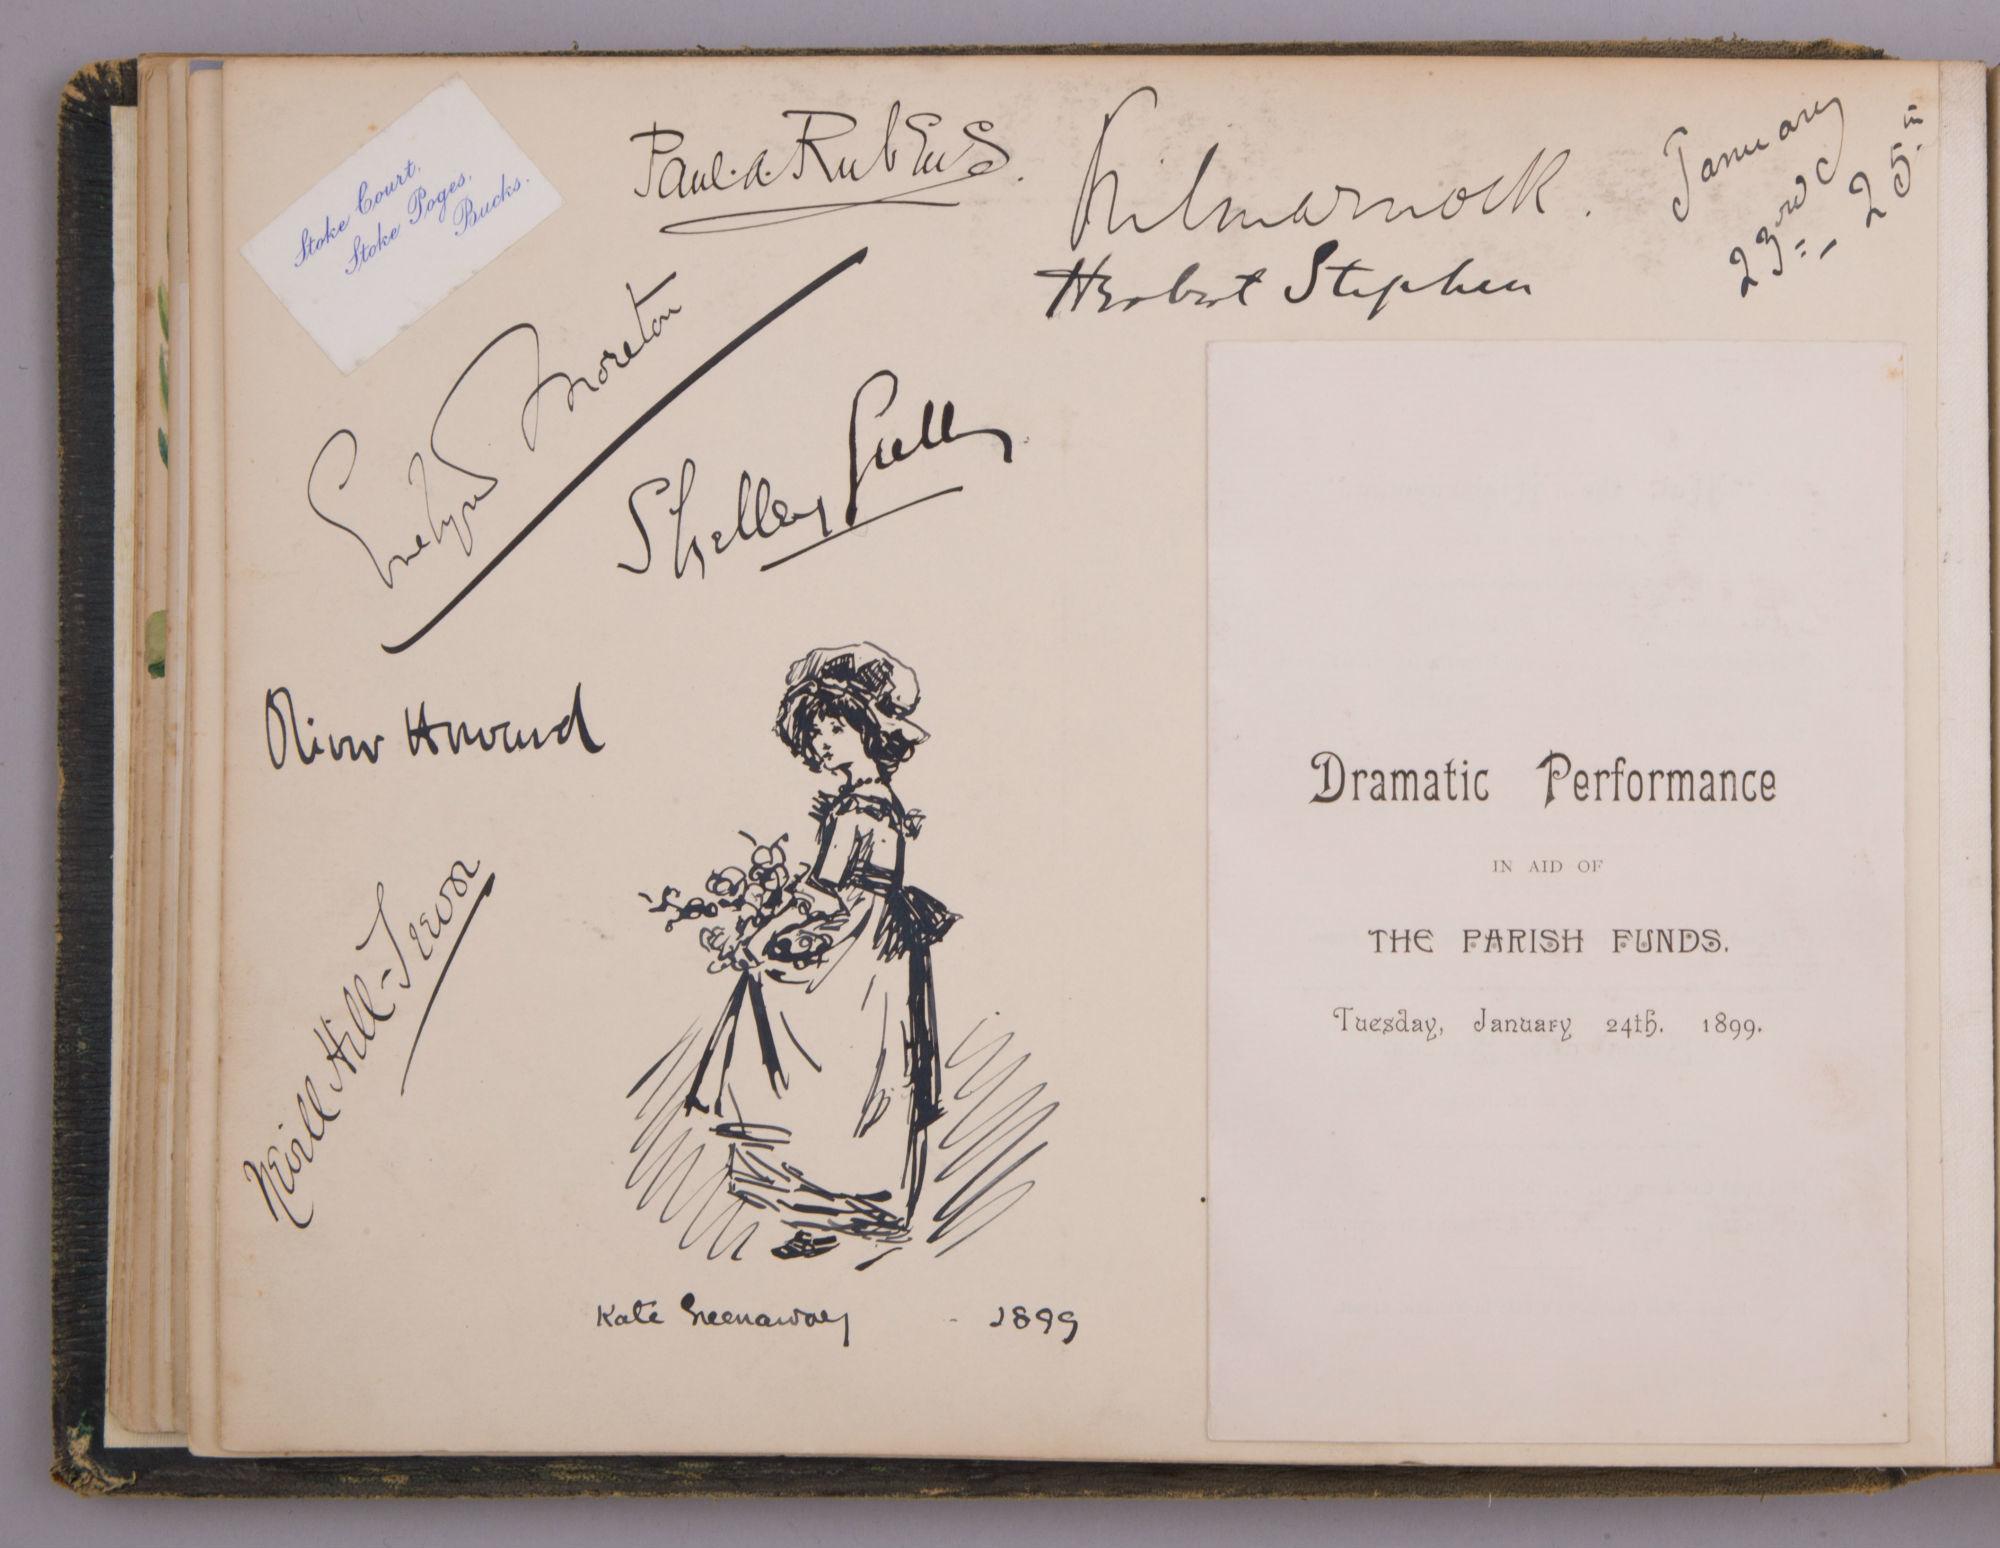 Stoke Court,
Stoke Poges,
Bucks.
Paul. A. Rubens.
Kilmarnock.
Herbert Stephen
January
23rd - 25.th
Evelyn Moreton
Shelley Gully
Oliver Howard
Nevill Hill-Trevor
Kate Greenaway - 1899
Dramatic Performance
IN AID OF
THE PARISH FUNDS.
Tuesday, January 24th. 1899.